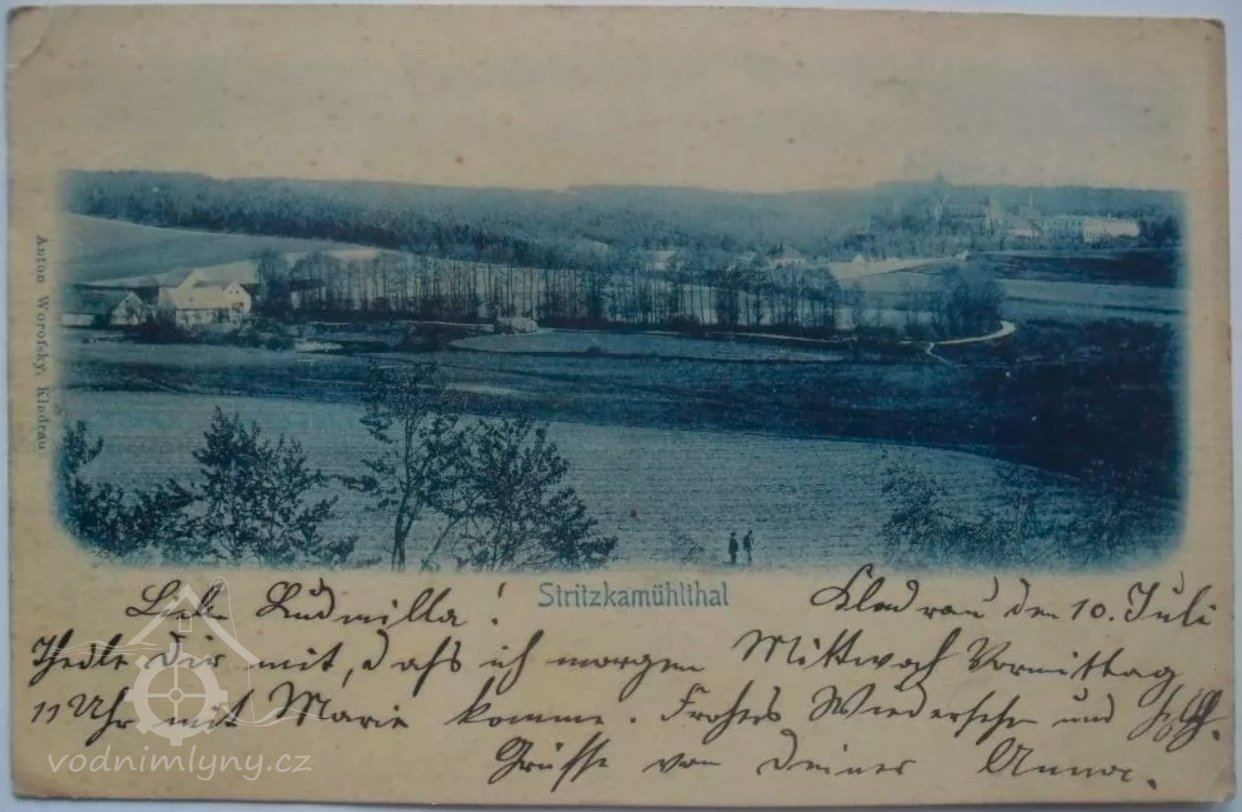 Anton Worofsky, Kladrau
Stritzkamühlthal
Liebe Ludmilla!
Kladrau den 10. Juli
Theile Dir mit, daß ich morgen Mittwoch Vormittag
11 Uhr mit Marie komme. Frohes Wiedersehen und
Grüsse von Deiner Anna.
vodnimlyny.cz